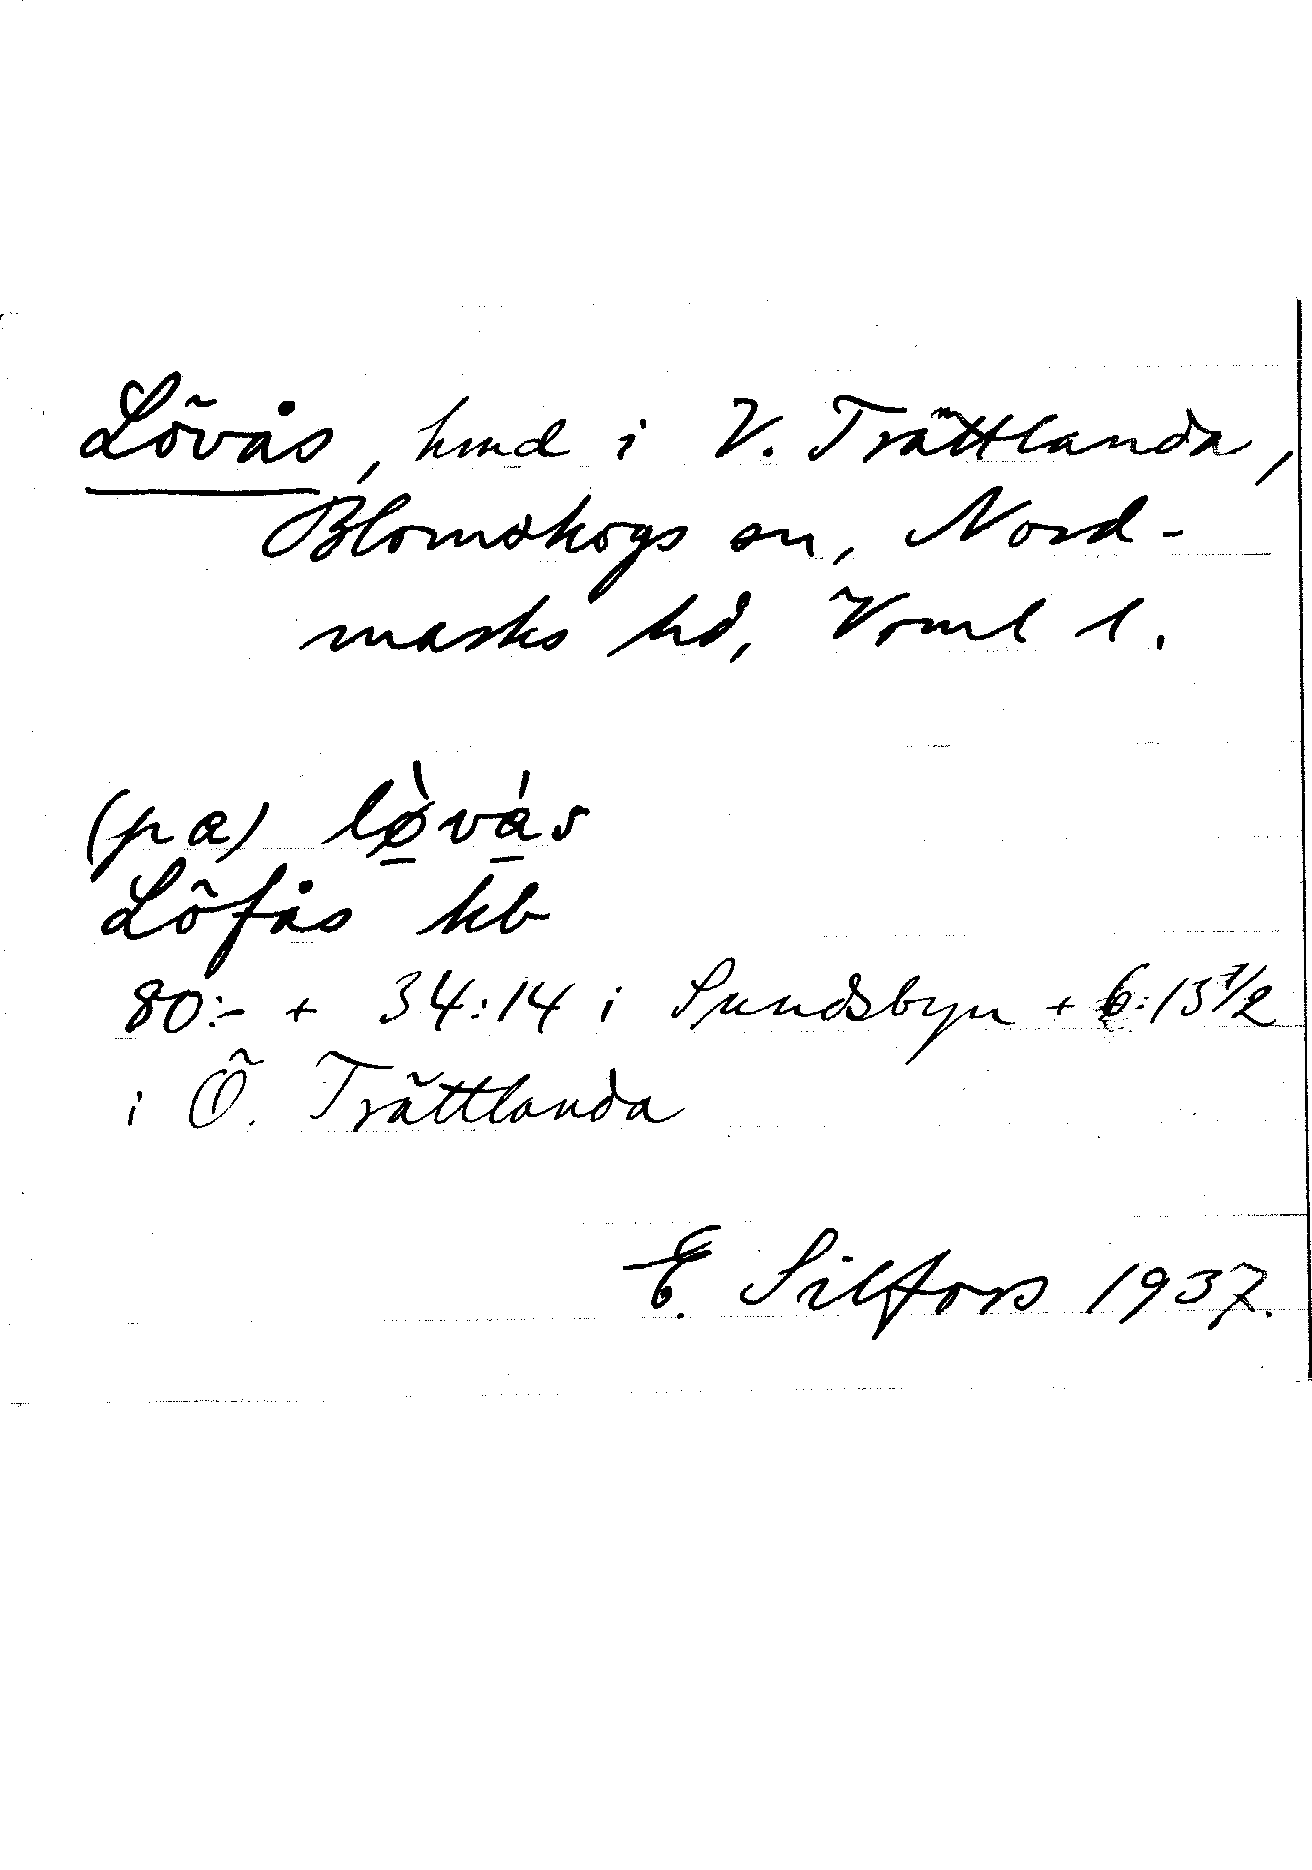 Lövås, hmd i V. Trättlanda,
Blomskogs sn, Nord-
marks hd, Vrml l.
(pa) lø̀vás
Löfås kb
80:- + 34:14 i Sundsbyn + 6:13 1/2
i Ö. Trättlanda
E. Silfors 1937.